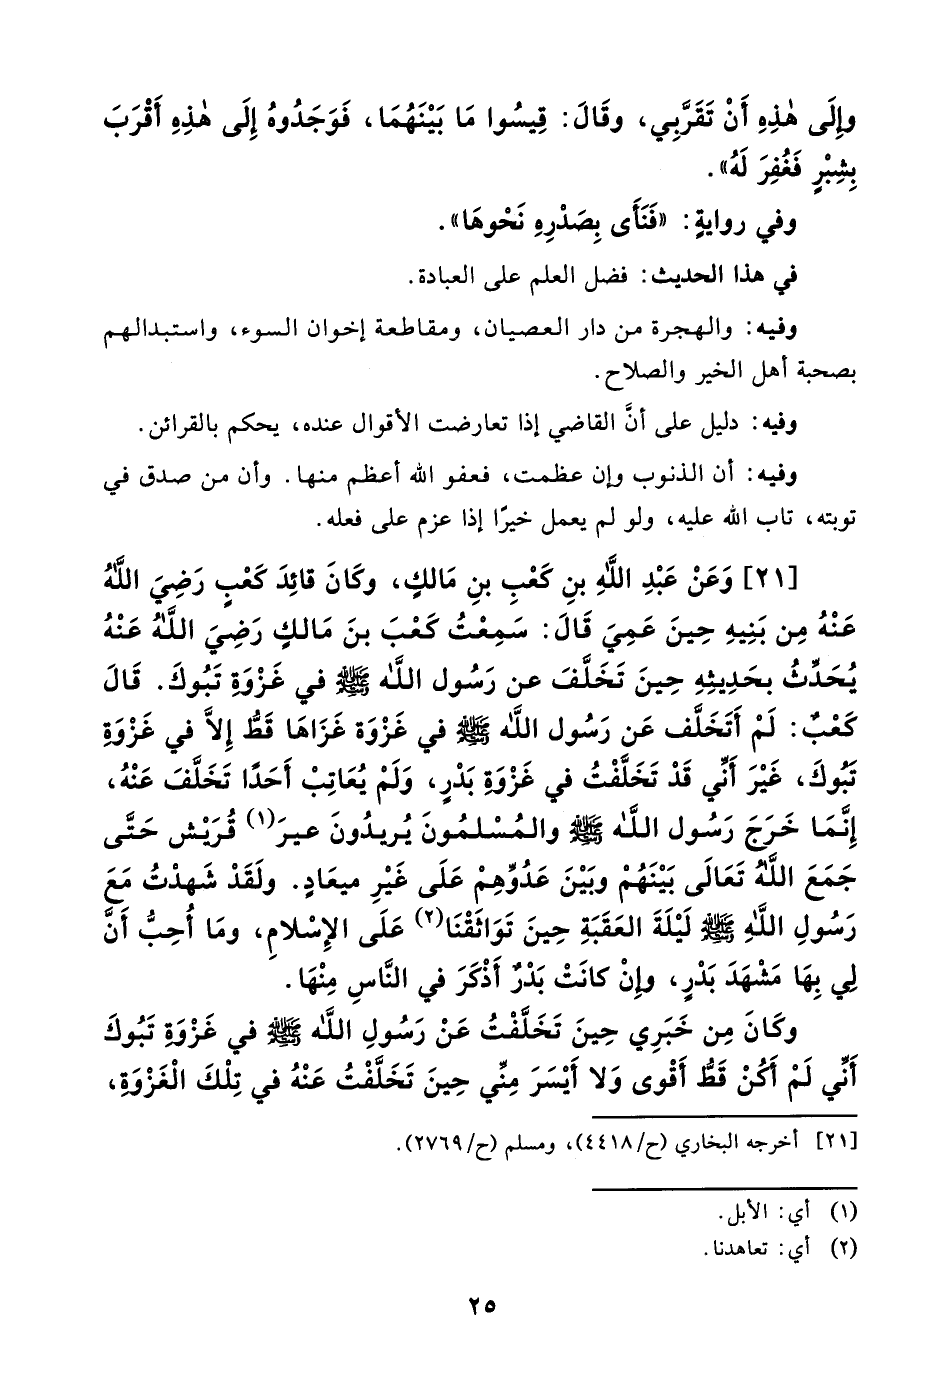 وإِلَى هٰذِهِ أَنْ تَقَرَّبِي، وقَالَ: قِيسُوا مَا بَيْنَهُمَا، فَوَجَدُوهُ إِلَى هٰذِهِ أَقْرَبَ
بِشِبْرٍ فَغُفِرَ لَهُ».
وفي روايةٍ: «فَنَأَى بِصَدْرِهِ نَحْوهَا».
في هذا الحديث: فضل العلم على العبادة.
وفيه: والهجرة من دار العصيان، ومقاطعة إخوان السوء، واستبدالهم
بصحبة أهل الخير والصلاح.
وفيه: دليل على أنَّ القاضي إذا تعارضت الأقوال عنده، يحكم بالقرائن.
وفيه: أن الذنوب وإن عظمت، فعفو الله أعظم منها. وأن من صدق في
توبته، تاب الله عليه، ولو لم يعمل خيرًا إذا عزم على فعله.
[٢١] وَعَنْ عَبْدِ اللَّهِ بنِ كَعْبِ بنِ مَالكٍ، وكَانَ قائِدَ كَعْبٍ رَضِيَ اللَّهُ
عَنْهُ مِن بَنِيهِ حِينَ عَمِيَ قَالَ: سَمِعْتُ كَعْبَ بنَ مَالكٍ رَضِيَ اللَّهُ عَنْهُ
يُحَدِّثُ بحَدِيثِهِ حِينَ تَخَلَّفَ عن رَسُول اللَّه ﷺ في غَزْوَةِ تَبُوكَ. قَالَ
كَعْبٌ: لَمْ أَتَخَلَّف عَن رَسُول اللَّه ﷺ في غَزْوَة غَزَاهَا قَطُّ إلاَّ في غَزْوَةِ
تَبُوكَ، غَيْرَ أَنِّي قَدْ تَخَلَّفْتُ في غَزْوَةِ بَدْرٍ، وَلَمْ يُعَاتِبْ أَحَدًا تَخَلَّفَ عَنْهُ،
إِنَّمَا خَرَجَ رَسُول اللَّه ﷺ والمُسْلمُونَ يُريدُونَ عيرَ(١) قُرَيْش حَتَّى
جَمَعَ اللَّهُ تَعَالَى بَيْنَهُمْ وبَيْنَ عَدُوِّهِمْ عَلَى غَيْرِ ميعَادٍ. ولَقَدْ شَهِدْتُ مَعَ
رَسُولِ اللَّهِ ﷺ لَيْلَةَ العَقَبَةِ حِينَ تَوَاثَقْنَا(٢) عَلَى الإسْلامِ، ومَا أُحِبُّ أَنَّ
لِي بِهَا مَشْهَدَ بَدْرٍ، وإِنْ كانَتْ بَدْرٌ أَذْكَرَ في النَّاسِ مِنْهَا.
وكَانَ مِن خَبَرِي حِينَ تَخَلَّفْتُ عَنْ رَسُولِ اللَّه ﷺ في غَزْوَةِ تَبُوكَ
أَنِّي لَمْ أَكُنْ قَطُّ أَقْوى وَلا أَيْسَرَ مِنِّي حِينَ تَخَلَّفْتُ عَنْهُ في تِلْكَ الْغَزْوَةِ،
[٢١] أخرجه البخاري (ح/٤٤١٨)، ومسلم (ح/٢٧٦٩).
(١) أي: الأبل.
(٢) أي: تعاهدنا.
٢٥